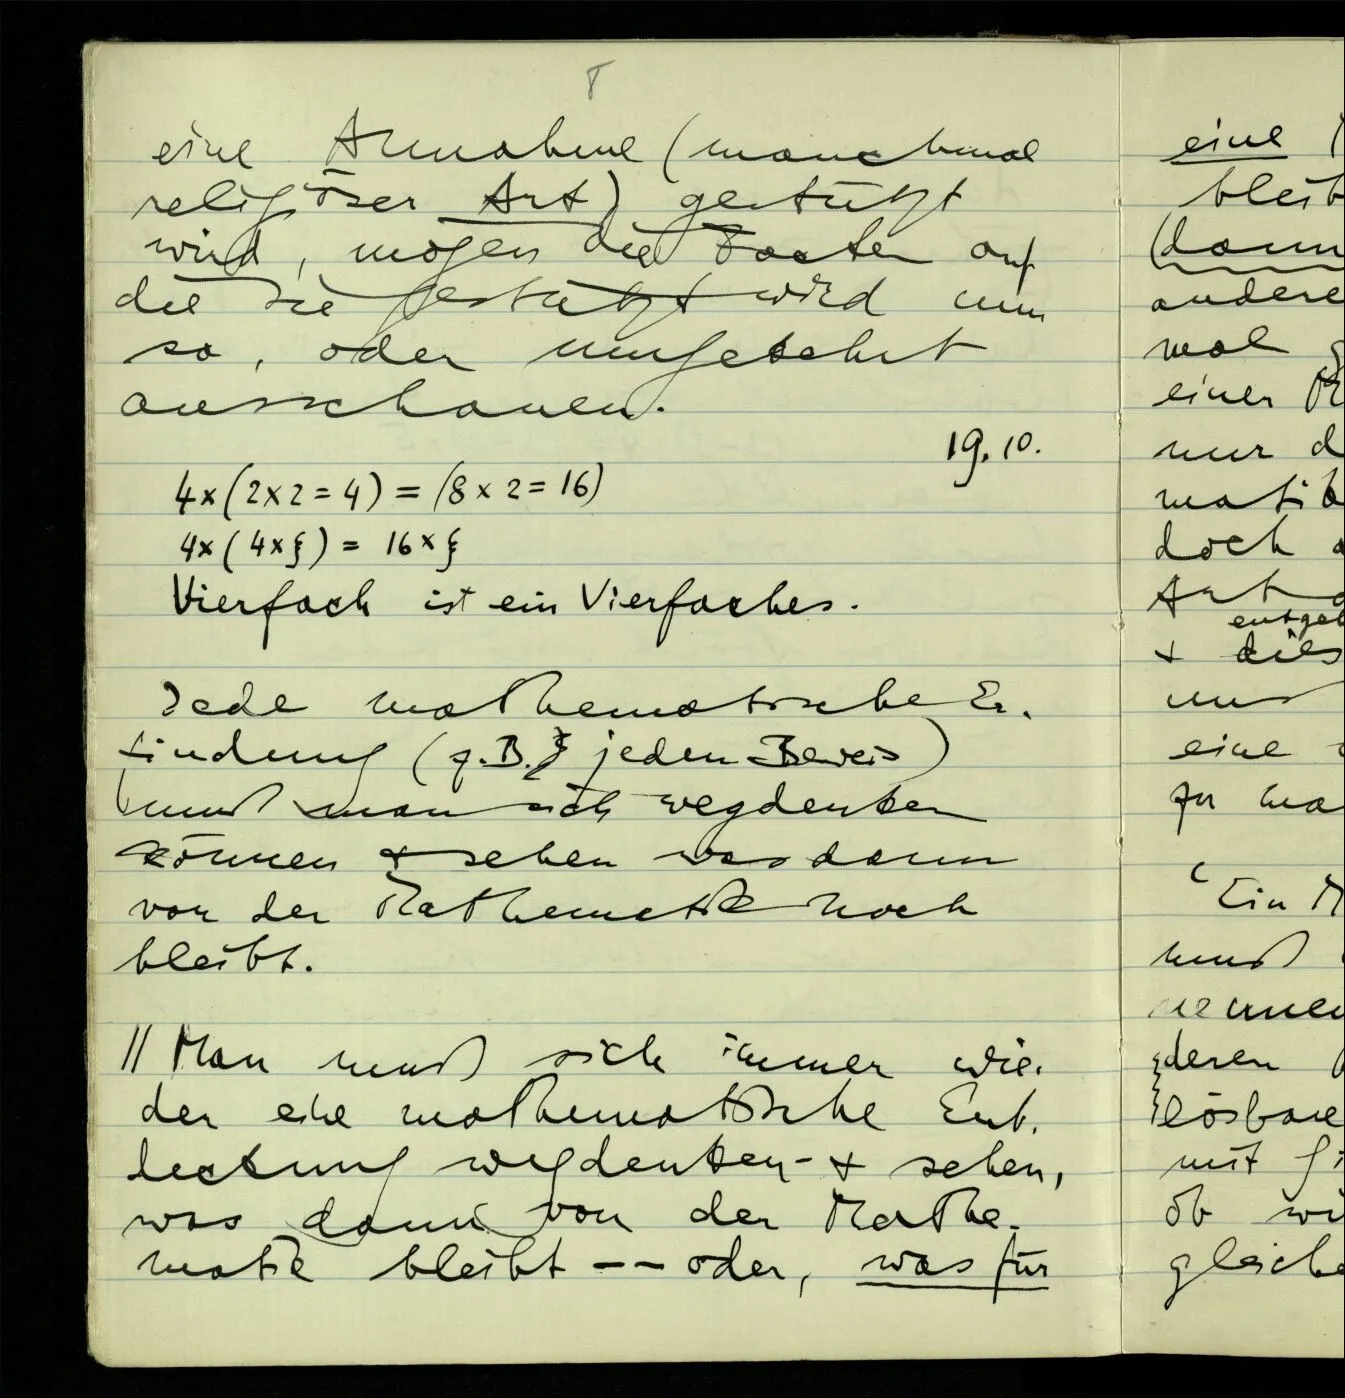 8
eine Annahme (manchmal
religiöser Art) gestützt
wird, mögen die Facten auf
die sie gestützt wird nun
so, oder umgekehrt
ausschauen.
19.10.
4×(2×2=4) = (8×2=16)
4×(4×ξ) = 16×ξ
Vierfach ist ein Vierfaches.
Jede mathematische Er-
findung (z.B. jeden Beweis)
muß man sich wegdenken
können & sehen was dann
von der Mathematik noch
bleibt.
// Man muß sich immer wie-
der eine mathematische Ent-
deckung wegdenken & sehen,
was dann von der Mathe-
matik bleibt -- oder, was für
eine
bleib
(dann
andere
mal
einer
nur d
matik
doch
Art
& dies
uns
eine
zu ma
'Ein M
muß
nennen
deren
lösbare
mit
ob wi
gleiche